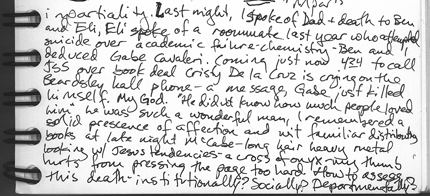 impartiality. Last night, I spoke of Dad + death to Ben
and Eli. Eli spoke of a roommate last year who attempted
suicide over academic failure-chemistry-Ben and
deduced Gabe Cavaleri. Coming just now 424 to call
JSS over book deal Crissy De la Cruz is crying on the
Beardsley hall phone-a message, Gabe just killed
himself. My God. "He didn't know how much people loved
him he was such a wonderful man, I remembered a
solid prescence of affection and wit familiar distributing
books at late night McCabe-long hair heavy metal
looking w/ Jesus tendencies-a cross of onyx-my thumb
hurts from pressing the page too hard. How to assess
this death-institutionally? Socially? Departmentally?